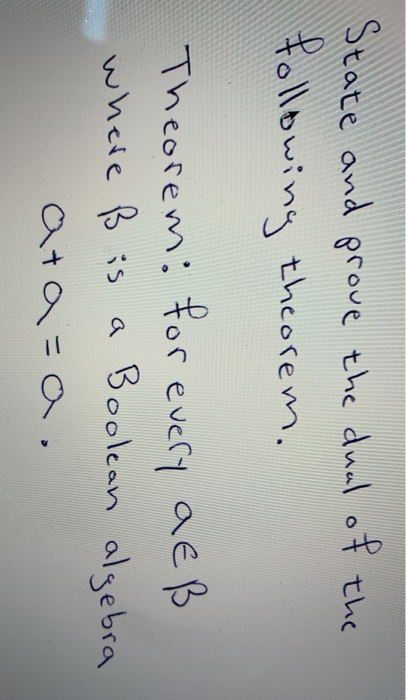 State and prove the dual of the
following theorem.
Theorem: for every a∈β
where β is a Boolean algebra
a+a=a.